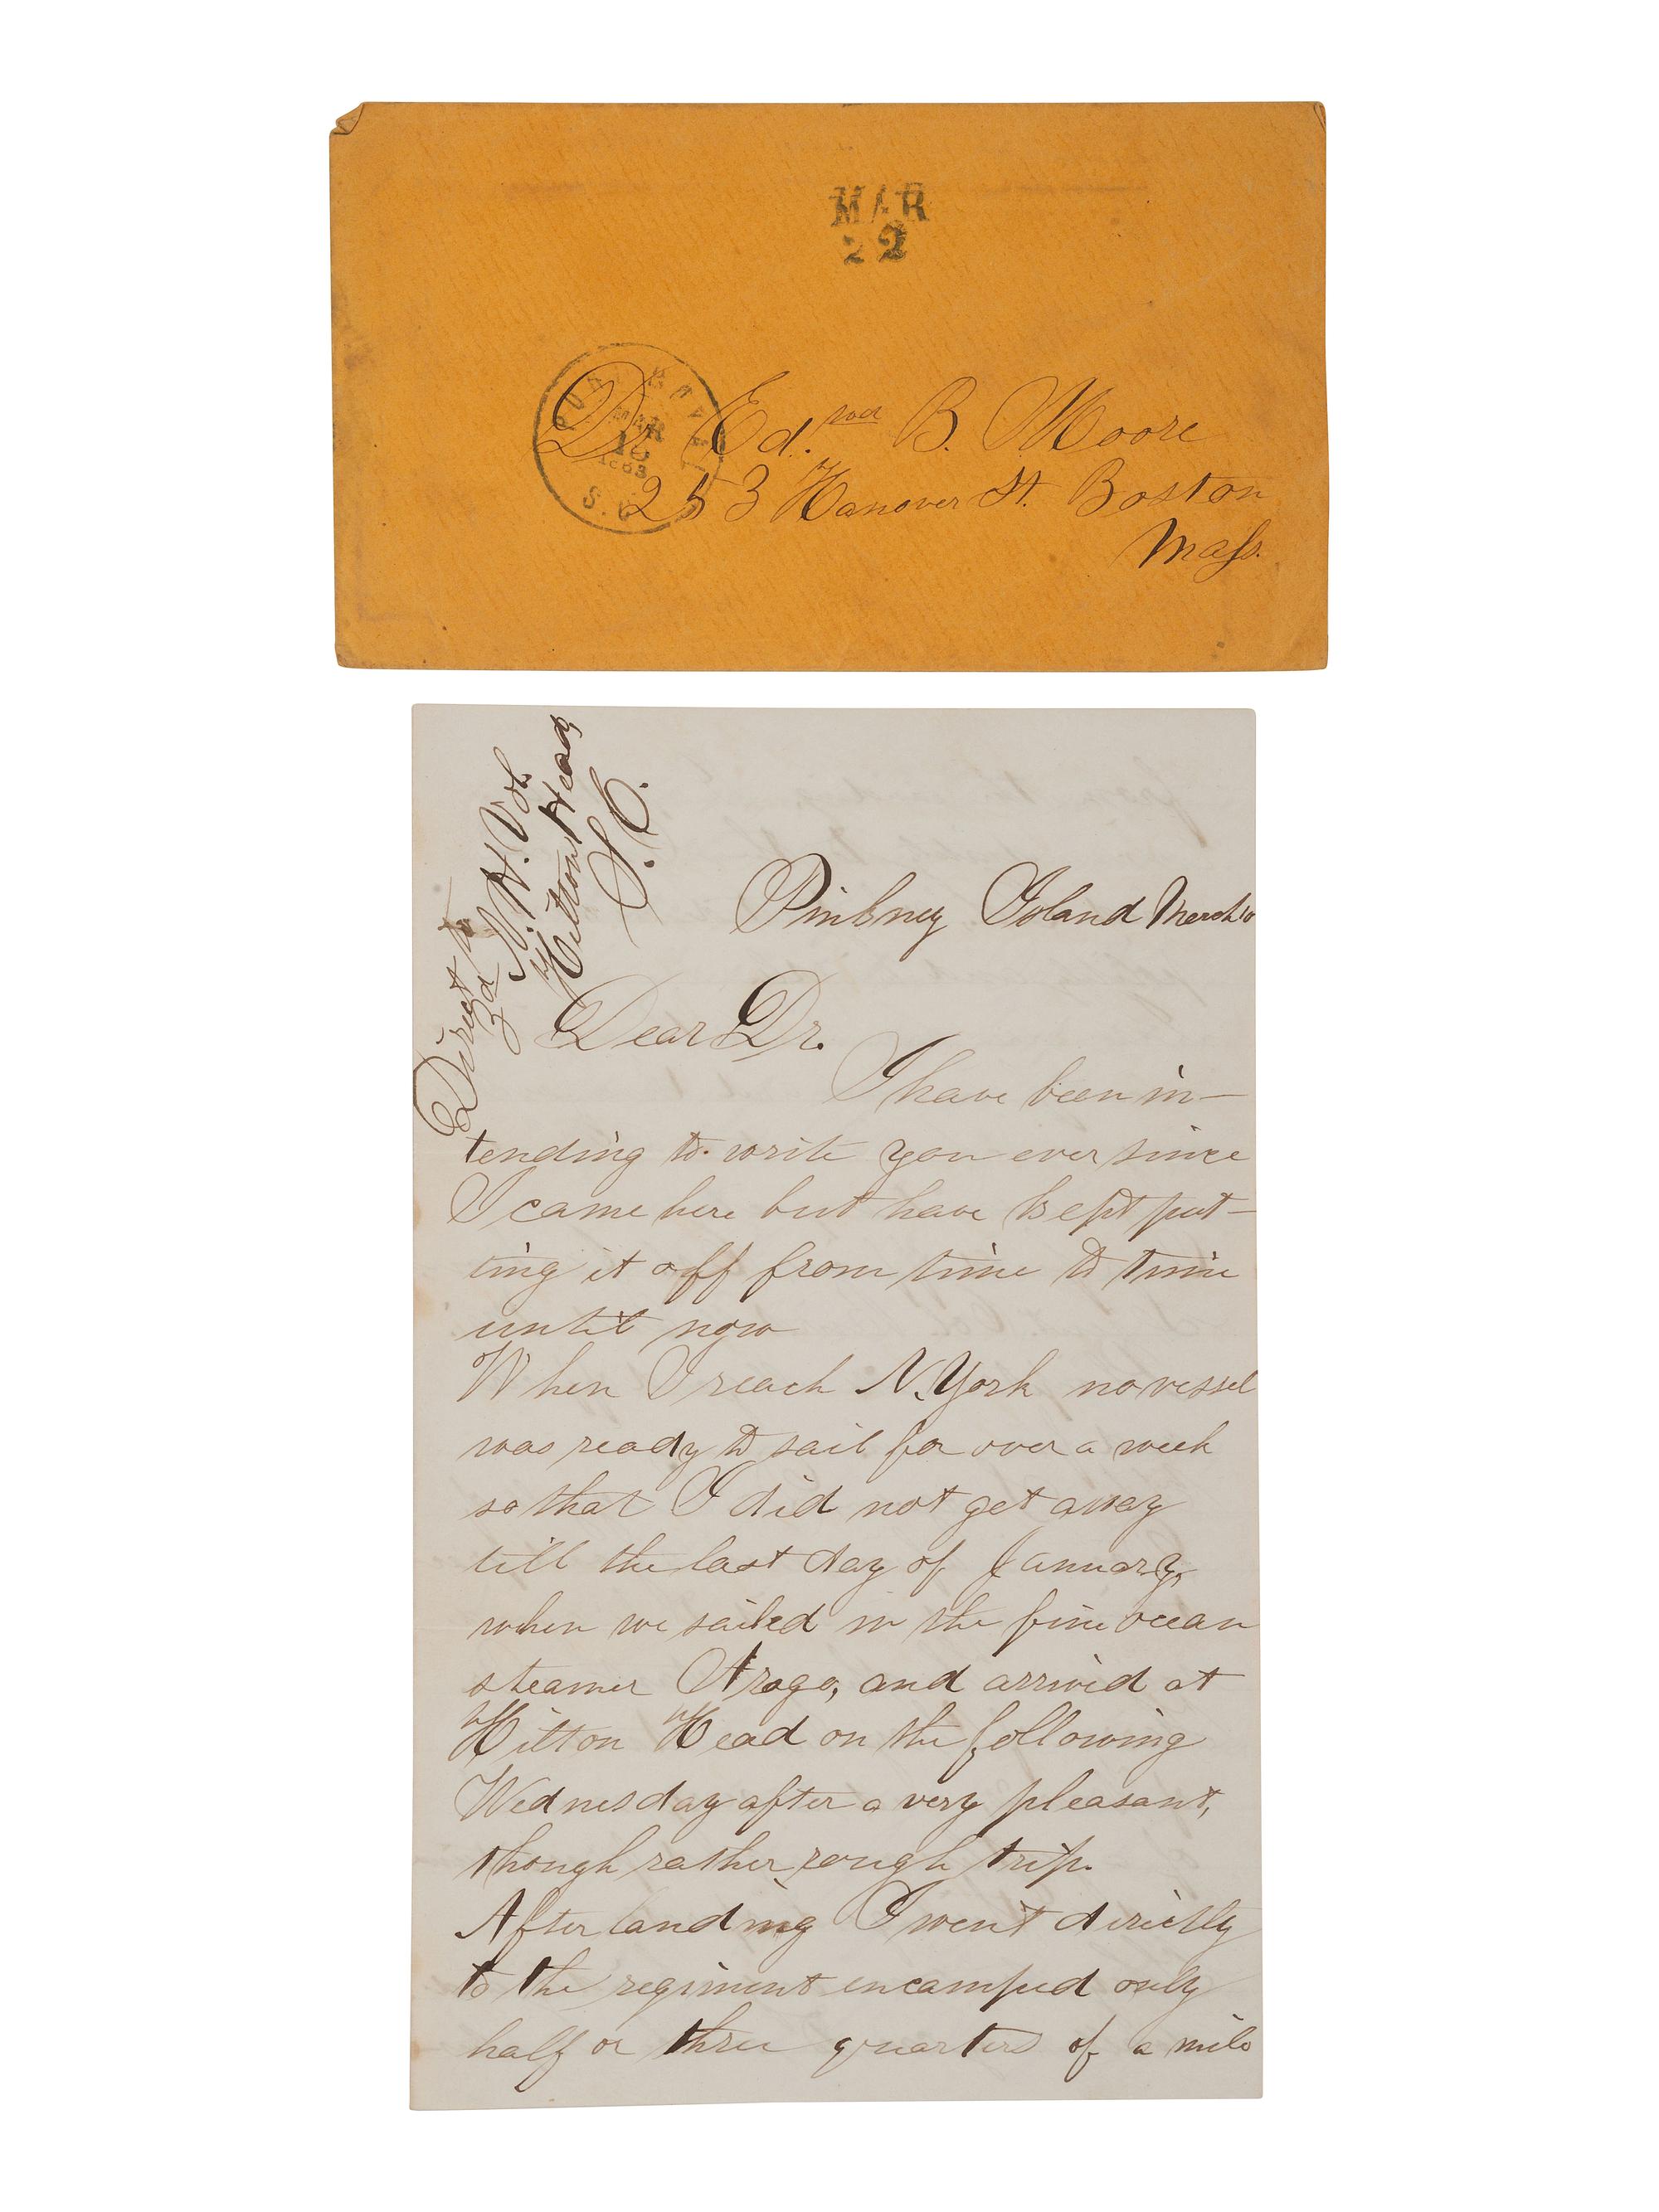 MAR
22
MAR
18
1863
S.C.
Dr Ed.wd B. Moore
253 Hanover St. Boston
Mass.
Direct to
3d N. H. Vols
Hilton Head,
S. C.
Pinkney Island March 10
Dear Dr.
I have been in-
tending to write you ever since
I came here but have kept put-
ting it off from time to time
until now
When I reach N. York no vessel
was ready to sail for over a week
so that I did not get away
till the last day of January,
when we sailed in the fine ocean
steamer Arago, and arrived at
Hilton Head on the following
Wednesday after a very pleasant,
though rather rough trip.
After landing I went directly
to the regiment encamped only
half or three quarters of a mile